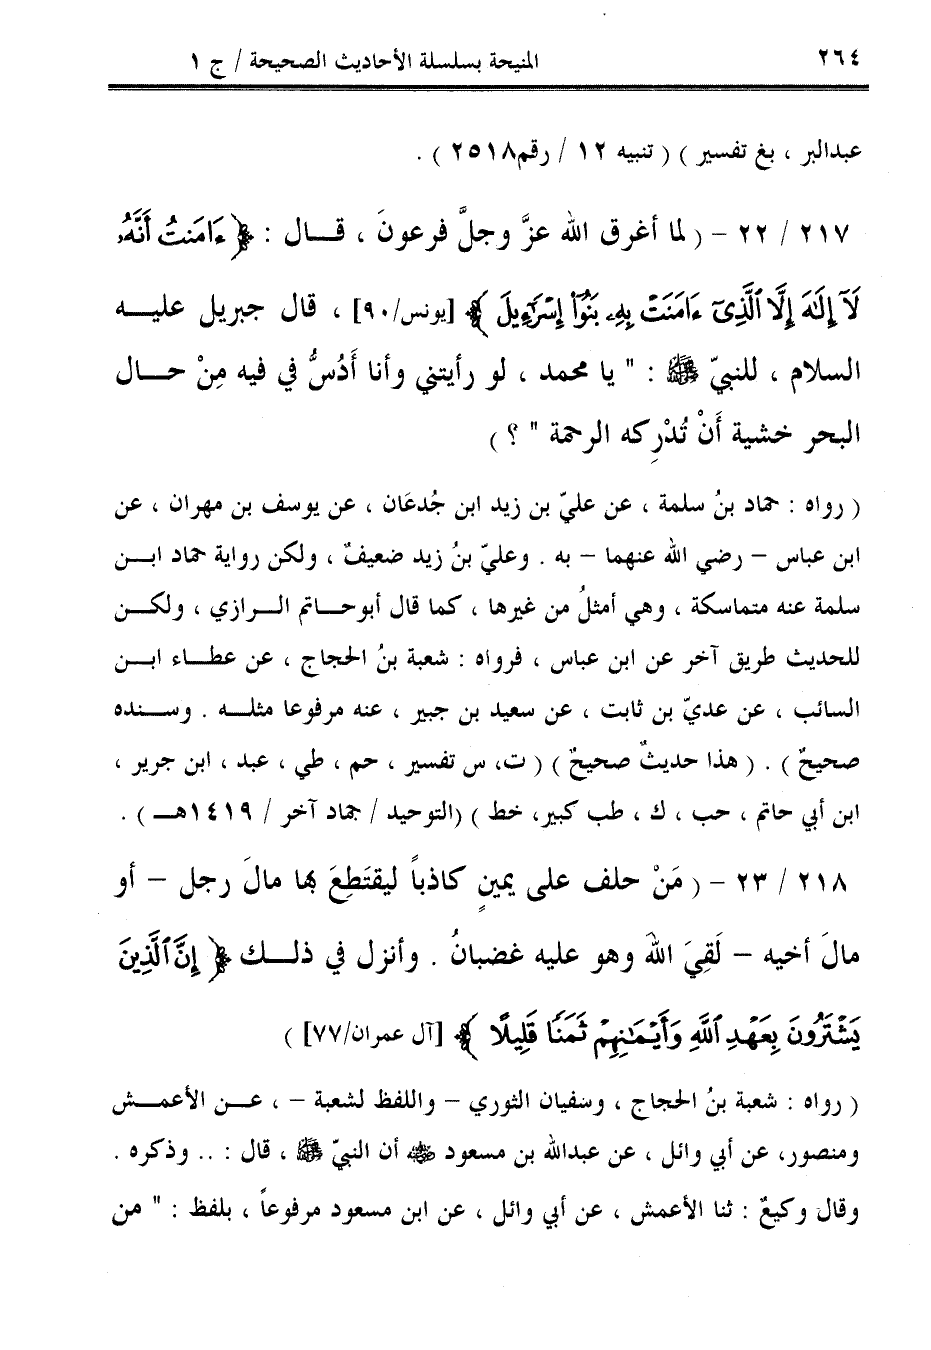 ٢٦٤ المنيحة بسلسلة الأحاديث الصحيحة / ج ١
عبدالبر ، بغ تفسير ) ( تنبيه ١٢ / رقم٢٥١٨ ) .
٢١٧ / ٢٢ – ( لما أغرق الله عزَّ وجلَّ فرعونَ ، قــال : ﴿ ءَامَنتُ أَنَّهُۥ
لَآ إِلَٰهَ إِلَّا ٱلَّذِىٓ ءَامَنَتْ بِهِۦ بَنُوٓا۟ إِسْرَٰٓءِيلَ ﴾ [يونس/٩٠] ، قال جبريل عليــه
السلام ، للنبيّ ﷺ : " يا محمد ، لو رأيتني وأنا أَدُسُّ في فيه مِنْ حــال
البحر خشية أَنْ تُدْرِكه الرحمة " ؟ )
( رواه : حماد بنُ سلمة ، عن عليّ بن زيد ابن جُدعَان ، عن يوسف بن مهران ، عن
ابن عباس – رضي الله عنهما – به . وعليّ بنُ زيد ضعيفٌ ، ولكن رواية حماد ابــن
سلمة عنه متماسكة ، وهي أمثلُ من غيرها ، كما قال أبوحــاتم الــرازي ، ولكــن
للحديث طريق آخر عن ابن عباس ، فرواه : شعبة بنُ الحجاج ، عن عطــاء ابــن
السائب ، عن عديّ بن ثابت ، عن سعيد بن جبير ، عنه مرفوعا مثلــه . وســنده
صحيحٌ ) . ( هذا حديثٌ صحيحٌ ) ( ت، س تفسير ، حم ، طي ، عبد ، ابن جرير ،
ابن أبي حاتم ، حب ، ك ، طب كبير، خط ) (التوحيد / جماد آخر / ١٤١٩هــ ) .
٢١٨ / ٢٣ – ( مَنْ حلف على يمينٍ كاذباً ليقتَطِعَ بها مالَ رجل – أو
مالَ أخيه – لَقِيَ اللهَ وهو عليه غضبانُ . وأنزل في ذلــك ﴿ إِنَّ ٱلَّذِينَ
يَشْتَرُونَ بِعَهْدِ ٱللَّهِ وَأَيْمَٰنِهِمْ ثَمَنًا قَلِيلًا ﴾ [آل عمران/٧٧] )
( رواه : شعبة بنُ الحجاج ، وسفيان الثوري – واللفظ لشعبة – ، عــن الأعمــش
ومنصور، عن أبي وائل ، عن عبدالله بن مسعود ﷺ أن النبيّ ﷺ ، قال : .. وذكره .
وقال وكيعٌ : ثنا الأعمش ، عن أبي وائل ، عن ابن مسعود مرفوعاً ، بلفظ : " من